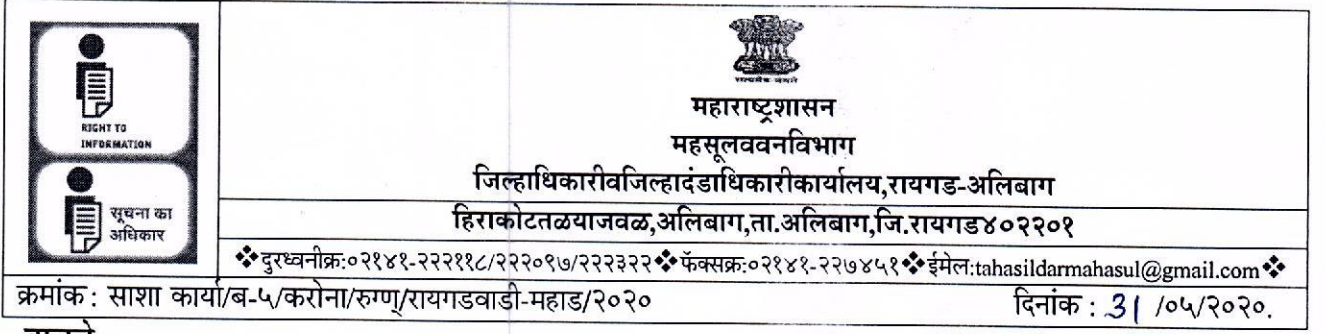 RIGHT TO
INFORMATION
सूचना का
अधिकार
सत्यमेव जयते
महाराष्ट्रशासन
महसूलववनविभाग
जिल्हाधिकारीवजिल्हादंडाधिकारीकार्यालय,रायगड-अलिबाग
हिराकोटतळयाजवळ,अलिबाग,ता.अलिबाग,जि.रायगड४०२२०१
❖दुरध्वनीक्र:०२१४१-२२२११८/२२२०९७/२२२३२२❖फॅक्सक्र:०२१४१-२२७४५१❖ईमेल:tahasildarmahasul@gmail.com❖
क्रमांक : साशा कार्या/ब-५/करोना/रुग्ण/रायगडवाडी-महाड/२०२० दिनांक : 31 /०५/२०२०.